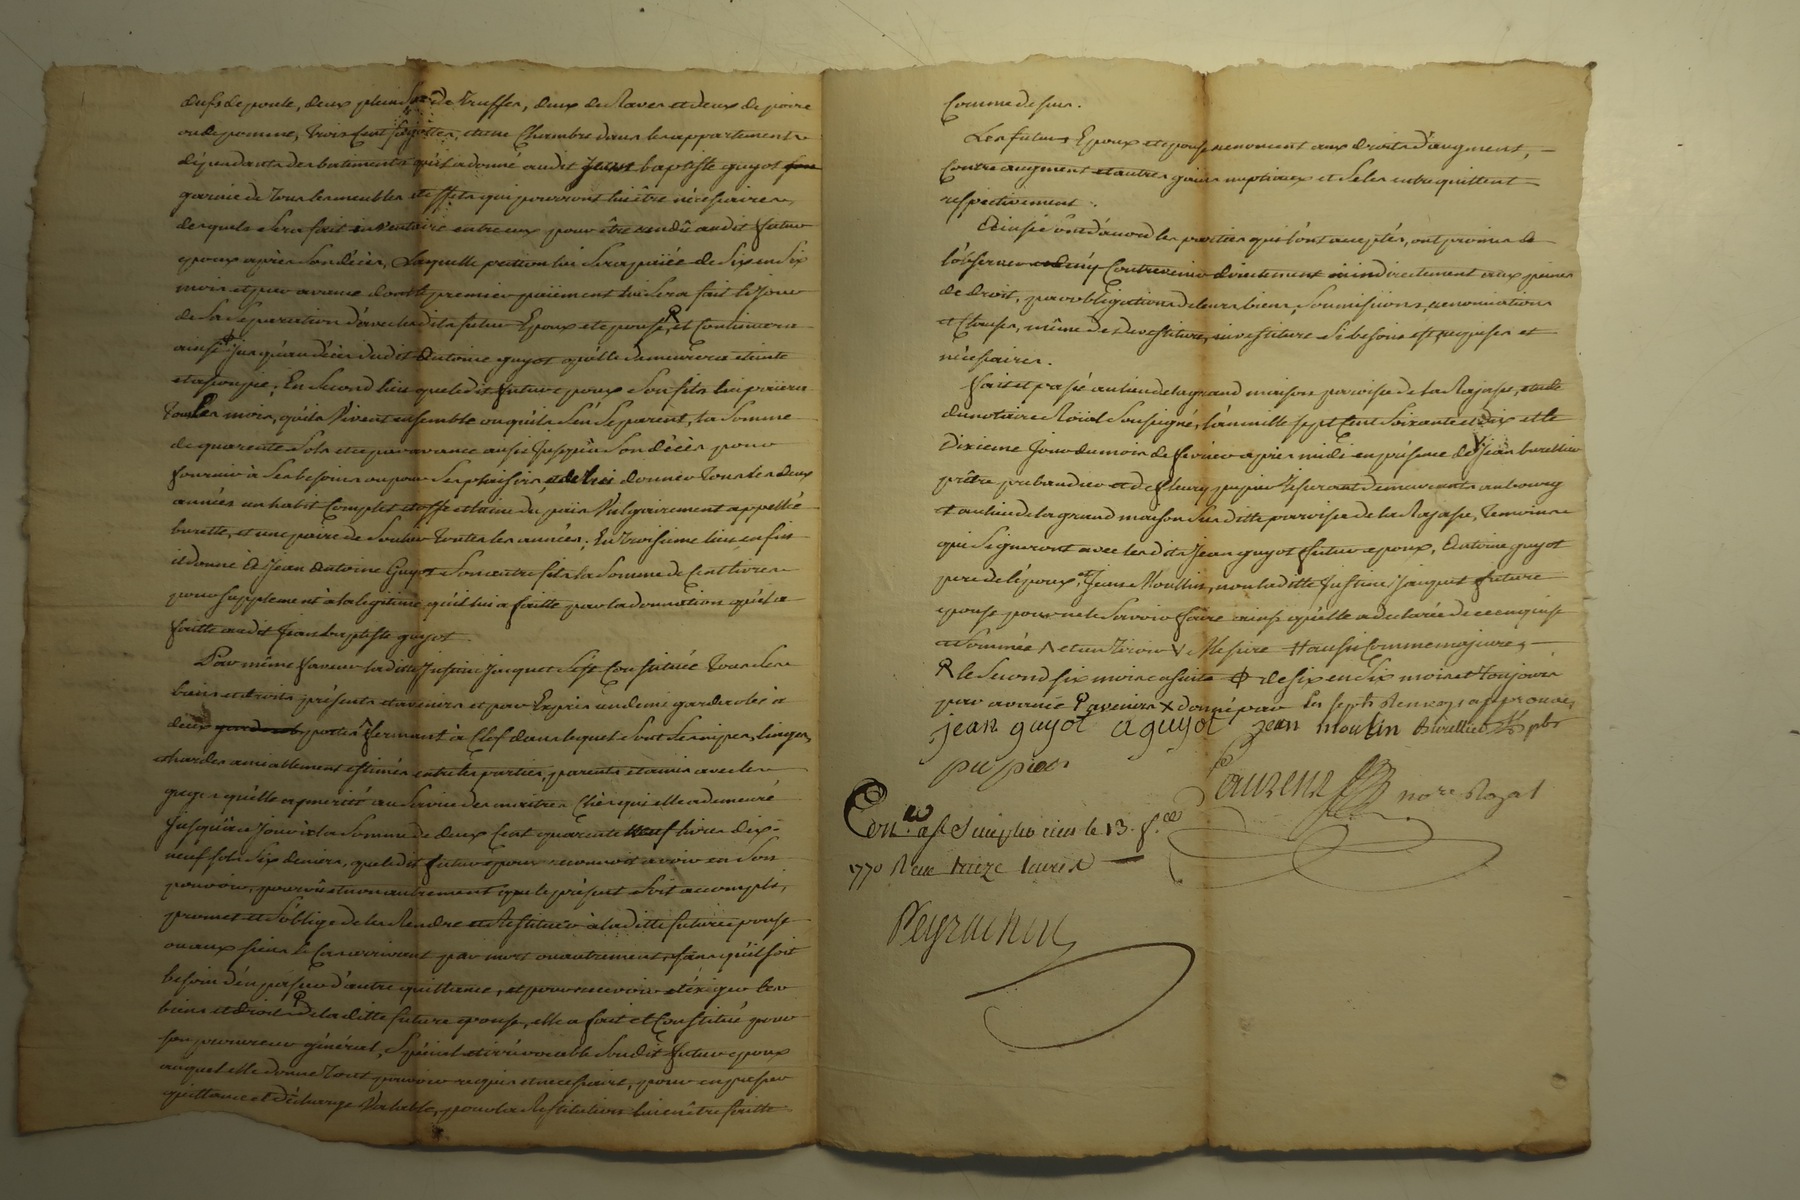 œufs de poule, deux pleins sac de truffes, deux de Raves et deux de poire
ou de pomme, trois cent fagotter, et une Chambre dans les appartements
dépendants des batiments qu'il a donné audit Jean baptiste guyot
garnie de tous les meubles et effets qui pourront lui être nécessaires,
desquels sera fait inventaire entre eux pour être rendû audit futur
epoux après son décès, Laquelle pention lui sera païée de six en six
mois et par avance dont le premier païement lui sera fait le jour
de la separation d'avec lesdits futur Epoux et epouse, et Continuera
ainsi jusqu'au décès dudit Antoine guyot qu'elle demeurera eteinte
et assoupie; En second lieu que ledit futur epoux son fils lui païera
tous les mois, qu'ils vivent ensemble ou qu'ils sén séparent, la somme
de quarente sols et par avance aussi jusqu'à son décès pour
fournir à ses besoins ou pour ses plaisirs, et de lui donner tous les deux
années un habit Complet etoffe et laine du païs vulgairement appellé
buratte, et une paire de soulier toutes les années; En troisieme lieu enfin
il donne à Jean Antoine Guyot son autre fils la somme de Cent livres
pour supplement à la legitime qu'il lui a faitte par la donnation qu'il a
faitte audit Jean baptiste guyot.
Par même faveur laditte Justine Jaquet s'est Constituée tous ses
biens et droits présents et avenirs et par Exprès un demi garderobe à
deux portes fermant à Clef dans lequel sont ses nipes, linges,
et hardes amiablement estimés entre les parties, parents et amis avec les
gages qu'elle a mérité au service des maitres Chès qui elle a demeuré
jusqu'à ce jour à la somme de deux Cent quarente neuf livres dix-
neuf sols six deniers, que ledit futur epoux reconnoit avoir en son
pouvoir, pourvû et non autrement que le présent soit accompli,
promet et s'oblige de les Rendre et Restituer à laditte future epouse
ou aux siens le Cas arrivant par mort ou autrement, sans qu'il soit
besoin d'en passer d'autre quittance, et pour recevoir et éxiger les
biens et droits de laditte future epouse, elle a fait et Constitué pour
son procureur général, spécial et irrévocable sondit futur epoux
auquel elle donne tout pouvoir requis et necessaire, pour en passer
quittance et décharge valable, pour la Restitution lui en être faitte
Comme dessus.
Les futurs Epoux et epouse renoncent aux droits d'augment,
Contre augment et autres gains nuptiaux et se les entrequittent
respectivement.
Ainsi sont d'accord les parties qui l'ont accepté, ont promis de
l'observer Contrevenir directement ni indirectement aux peines
de droit, par obligations de leurs biens, soumissions, renonciations
et Clauses, même de devestiture, investiture si besoins est requises et
nécessaires.
fait et passé au lieu de la grand maison paroisse de la Rajasse, etude
du notaire Roïal soussigné, l'an mille sept Cent soixante et dix et le
dixieme jour du mois de février après midi en présence de Jean burellier
prêtre prebandier et de fleury pupier tisserant demeurants au bourg
et au lieu de la grand maison susditte paroisse de la Rajasse, temoins
qui signeront avec lesdits Jean guyot futur epoux, Antoine guyot
pere de l'époux, et Jean Moullin, non laditte Justine Jaquet future
epouse pour ne le savoir faire ainsi qu'elle a declarée de ce enquise
et sommée
le second six mois ensuite de six en six mois et toujours
par avance avenirs donné par les sept Renvoys approuvés
jean guyot a guyot jean moulin Burellier pbr
pu pier
Laurent nore Royal
Con.lé
1770 Reçu treize
Peyrachon